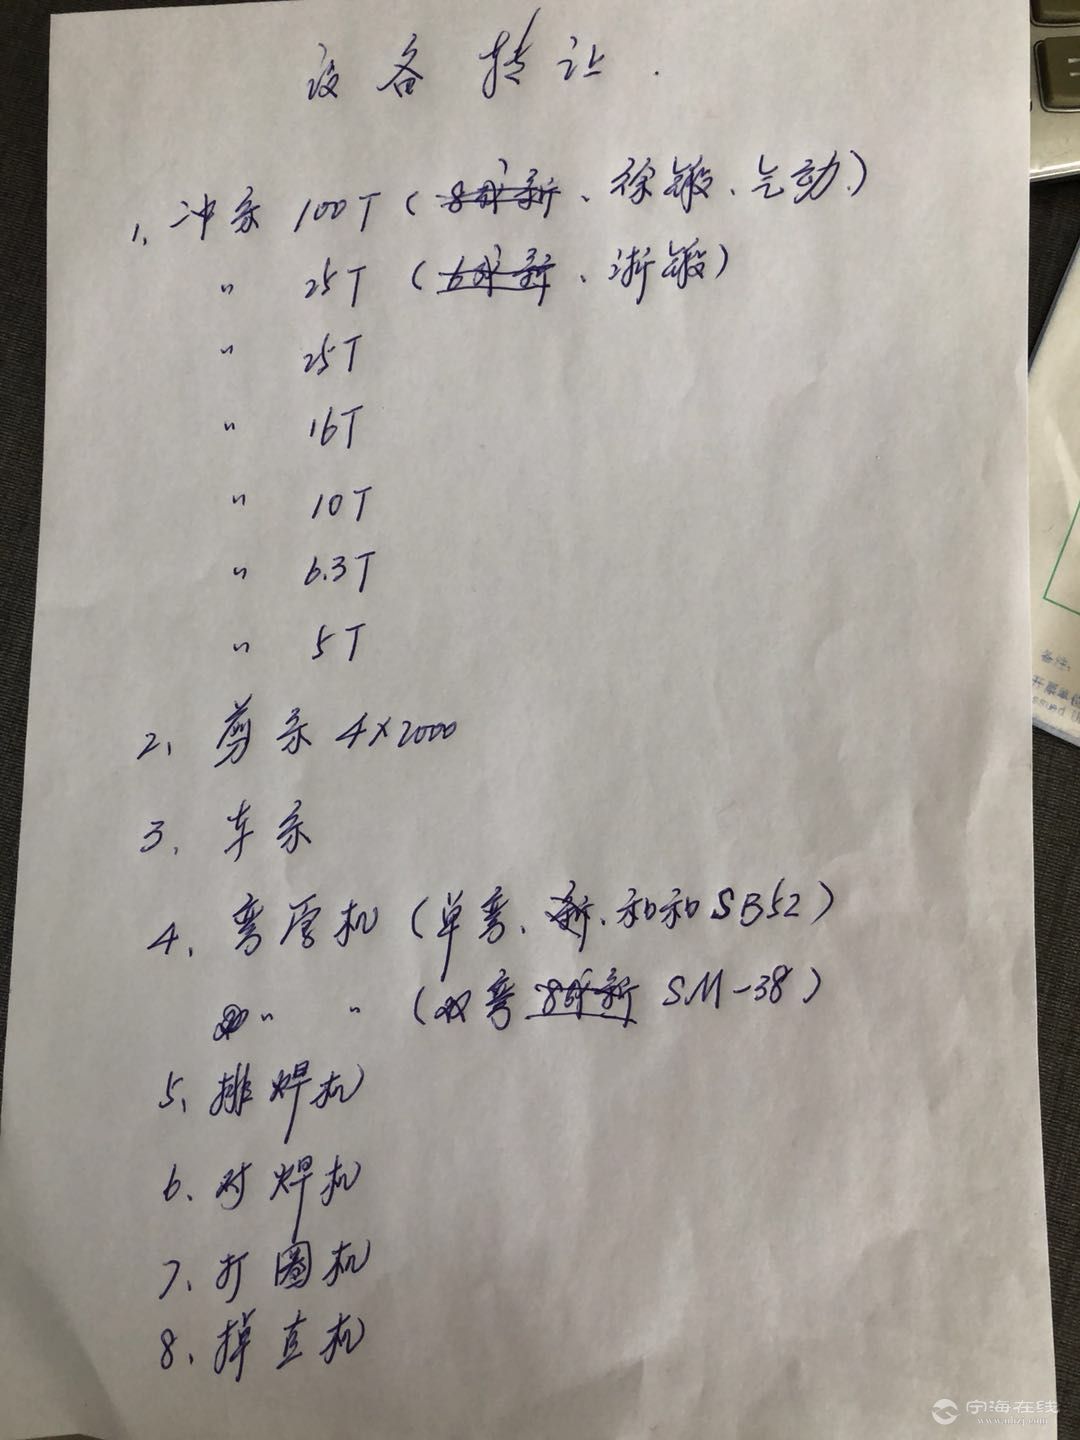 设备转让.
1、冲床 100T（8成新、徐锻、气动）
〃 25T（6成新、浙锻）
〃 25T
〃 16T
〃 10T
〃 6.3T
〃 5T
2、剪床 4×2000
3、车床
4、弯管机（单弯、新、和和SB52）
〃 〃（双弯8成新 SM-38）
5、排焊机
6、对焊机
7、打圈机
8、掉直机
备注:
开票单位
宁海在线
www.nhzj.com